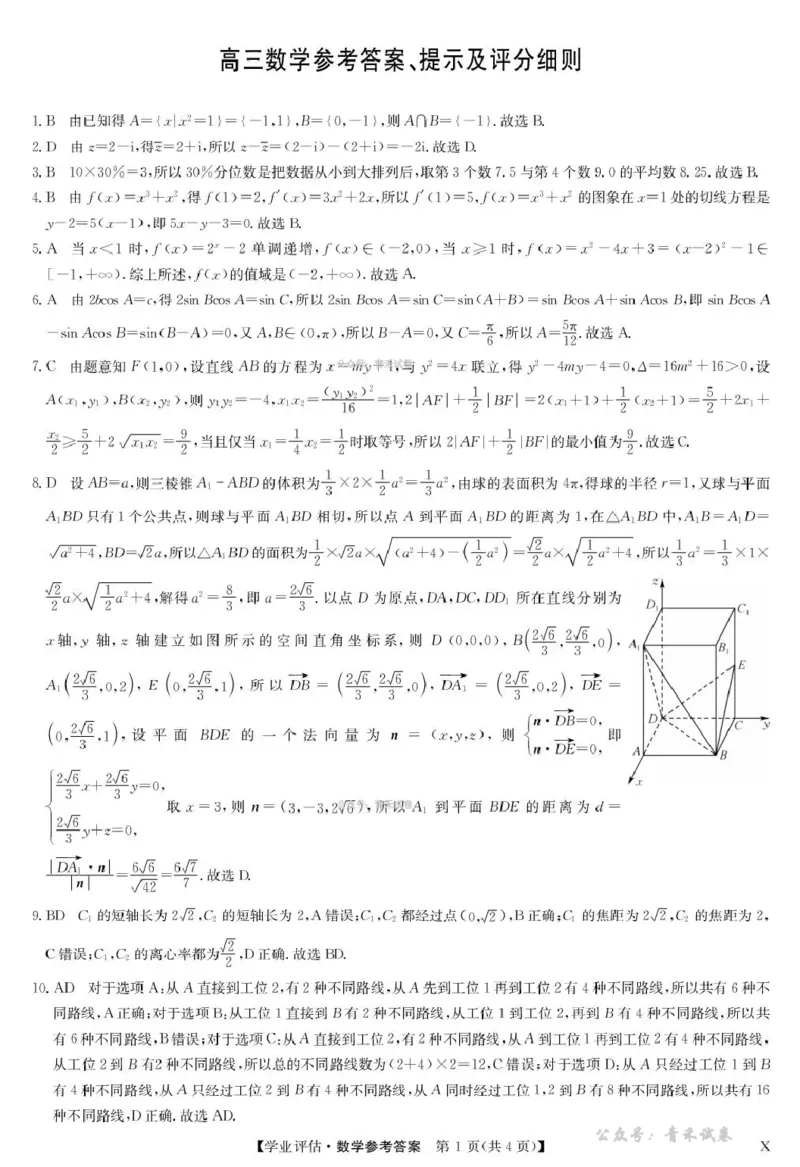 高三数学参考答案、提示及评分细则
1. B 由已知得 A={x|x²=1}={-1,1},B={0,-1},则 A∩B={-1}.故选 B.
2. D 由 z=2-i,得z̄=2+i,所以 z-z̄=(2-i)-(2+i)=-2i.故选 D.
3. B 10×30%=3,所以 30%分位数是把数据从小到大排列后,取第 3 个数 7.5 与第 4 个数 9.0 的平均数 8.25.故选 B.
4. B 由 f(x)=x³+x²,得 f(1)=2,f′(x)=3x²+2x,所以 f′(1)=5,f(x)=x³+x² 的图象在 x=1 处的切线方程是
y-2=5(x-1),即 5x-y-3=0.故选 B.
5. A 当 x<1 时,f(x)=2ˣ-2 单调递增,f(x)∈(-2,0),当 x≥1 时,f(x)=x²-4x+3=(x-2)²-1∈
[-1,+∞).综上所述,f(x)的值域是(-2,+∞).故选 A.
6. A 由 2bcos A=c,得 2sin Bcos A=sin C,所以 2sin Bcos A=sin C=sin(A+B)=sin Bcos A+sin Acos B,即 sin Bcos A
-sin Acos B=sin(B-A)=0,又 A,B∈(0,π),所以 B-A=0,又 C=π/6,所以 A=5π/12.故选 A.
7. C 由题意知 F(1,0),设直线 AB 的方程为 x=my+1,与 y²=4x 联立,得 y²-4my-4=0,Δ=16m²+16>0,设
A(x₁,y₁),B(x₂,y₂),则 y₁y₂=-4,x₁x₂=(y₁y₂)²/16=1,2|AF|+1/2|BF|=2(x₁+1)+1/2(x₂+1)=5/2+2x₁+
x₂/2≥5/2+2√(x₁x₂)=9/2,当且仅当 x₁=1/4x₂=1/2时取等号,所以 2|AF|+1/2|BF|的最小值为9/2.故选 C.
8. D 设 AB=a,则三棱锥 A₁-ABD 的体积为1/3×2×1/2a²=1/3a²,由球的表面积为 4π,得球的半径 r=1,又球与平面
A₁BD 只有 1 个公共点,则球与平面 A₁BD 相切,所以点 A 到平面 A₁BD 的距离为 1,在△A₁BD 中,A₁B=A₁D=
√(a²+4),BD=√2a,所以△A₁BD 的面积为1/2×√2a×√((a²+4)-(1/2a²))=√2/2a×√(1/2a²+4),所以1/3a²=1/3×1×
√2/2a×√(1/2a²+4),解得 a²=8/3,即 a=2√6/3.以点 D 为原点,DA,DC,DD₁ 所在直线分别为
x 轴,y 轴,z 轴建立如图所示的空间直角坐标系,则 D(0,0,0),B(2√6/3,2√6/3,0),
A₁(2√6/3,0,2),E(0,2√6/3,1),所以 DB→=(2√6/3,2√6/3,0),DA₁→=(2√6/3,0,2),DE→=
(0,2√6/3,1),设平面 BDE 的一个法向量为 n=(x,y,z),则 {n·DB→=0, n·DE→=0, 即
{2√6/3x+2√6/3y=0, 2√6/3y+z=0, 取 x=3,则 n=(3,-3,2√6),所以 A₁ 到平面 BDE 的距离为 d=
|DA₁→·n|/|n|=6√6/√42=6√7/7.故选 D.
z
D₁
C₁
A₁
B₁
E
D
C
y
A
B
x
9. BD C₁ 的短轴长为 2√2,C₂ 的短轴长为 2,A 错误;C₁,C₂ 都经过点(0,√2),B 正确;C₁ 的焦距为 2√2,C₂ 的焦距为 2,
C 错误;C₁,C₂ 的离心率都为√2/2,D 正确.故选 BD.
10. AD 对于选项 A:从 A 直接到工位 2,有 2 种不同路线,从 A 先到工位 1 再到工位 2 有 4 种不同路线,所以共有 6 种不
同路线,A 正确;对于选项 B:从工位 1 直接到 B 有 2 种不同路线,从工位 1 到工位 2,再到 B 有 4 种不同路线,所以共
有 6 种不同路线,B 错误;对于选项 C:从 A 直接到工位 2,有 2 种不同路线,从 A 到工位 1 再到工位 2 有 4 种不同路线,
从工位 2 到 B 有2 种不同路线,所以总的不同路线数为(2+4)×2=12,C 错误;对于选项 D:从 A 只经过工位 1 到 B
有 4 种不同路线,从 A 只经过工位 2 到 B 有 4 种不同路线,从 A 同时经过工位 1,2 到 B 有 8 种不同路线,所以共有 16
种不同路线,D 正确.故选 AD.
公众号:青禾试卷
【学业评估·数学参考答案 第 1 页(共 4 页)】 X